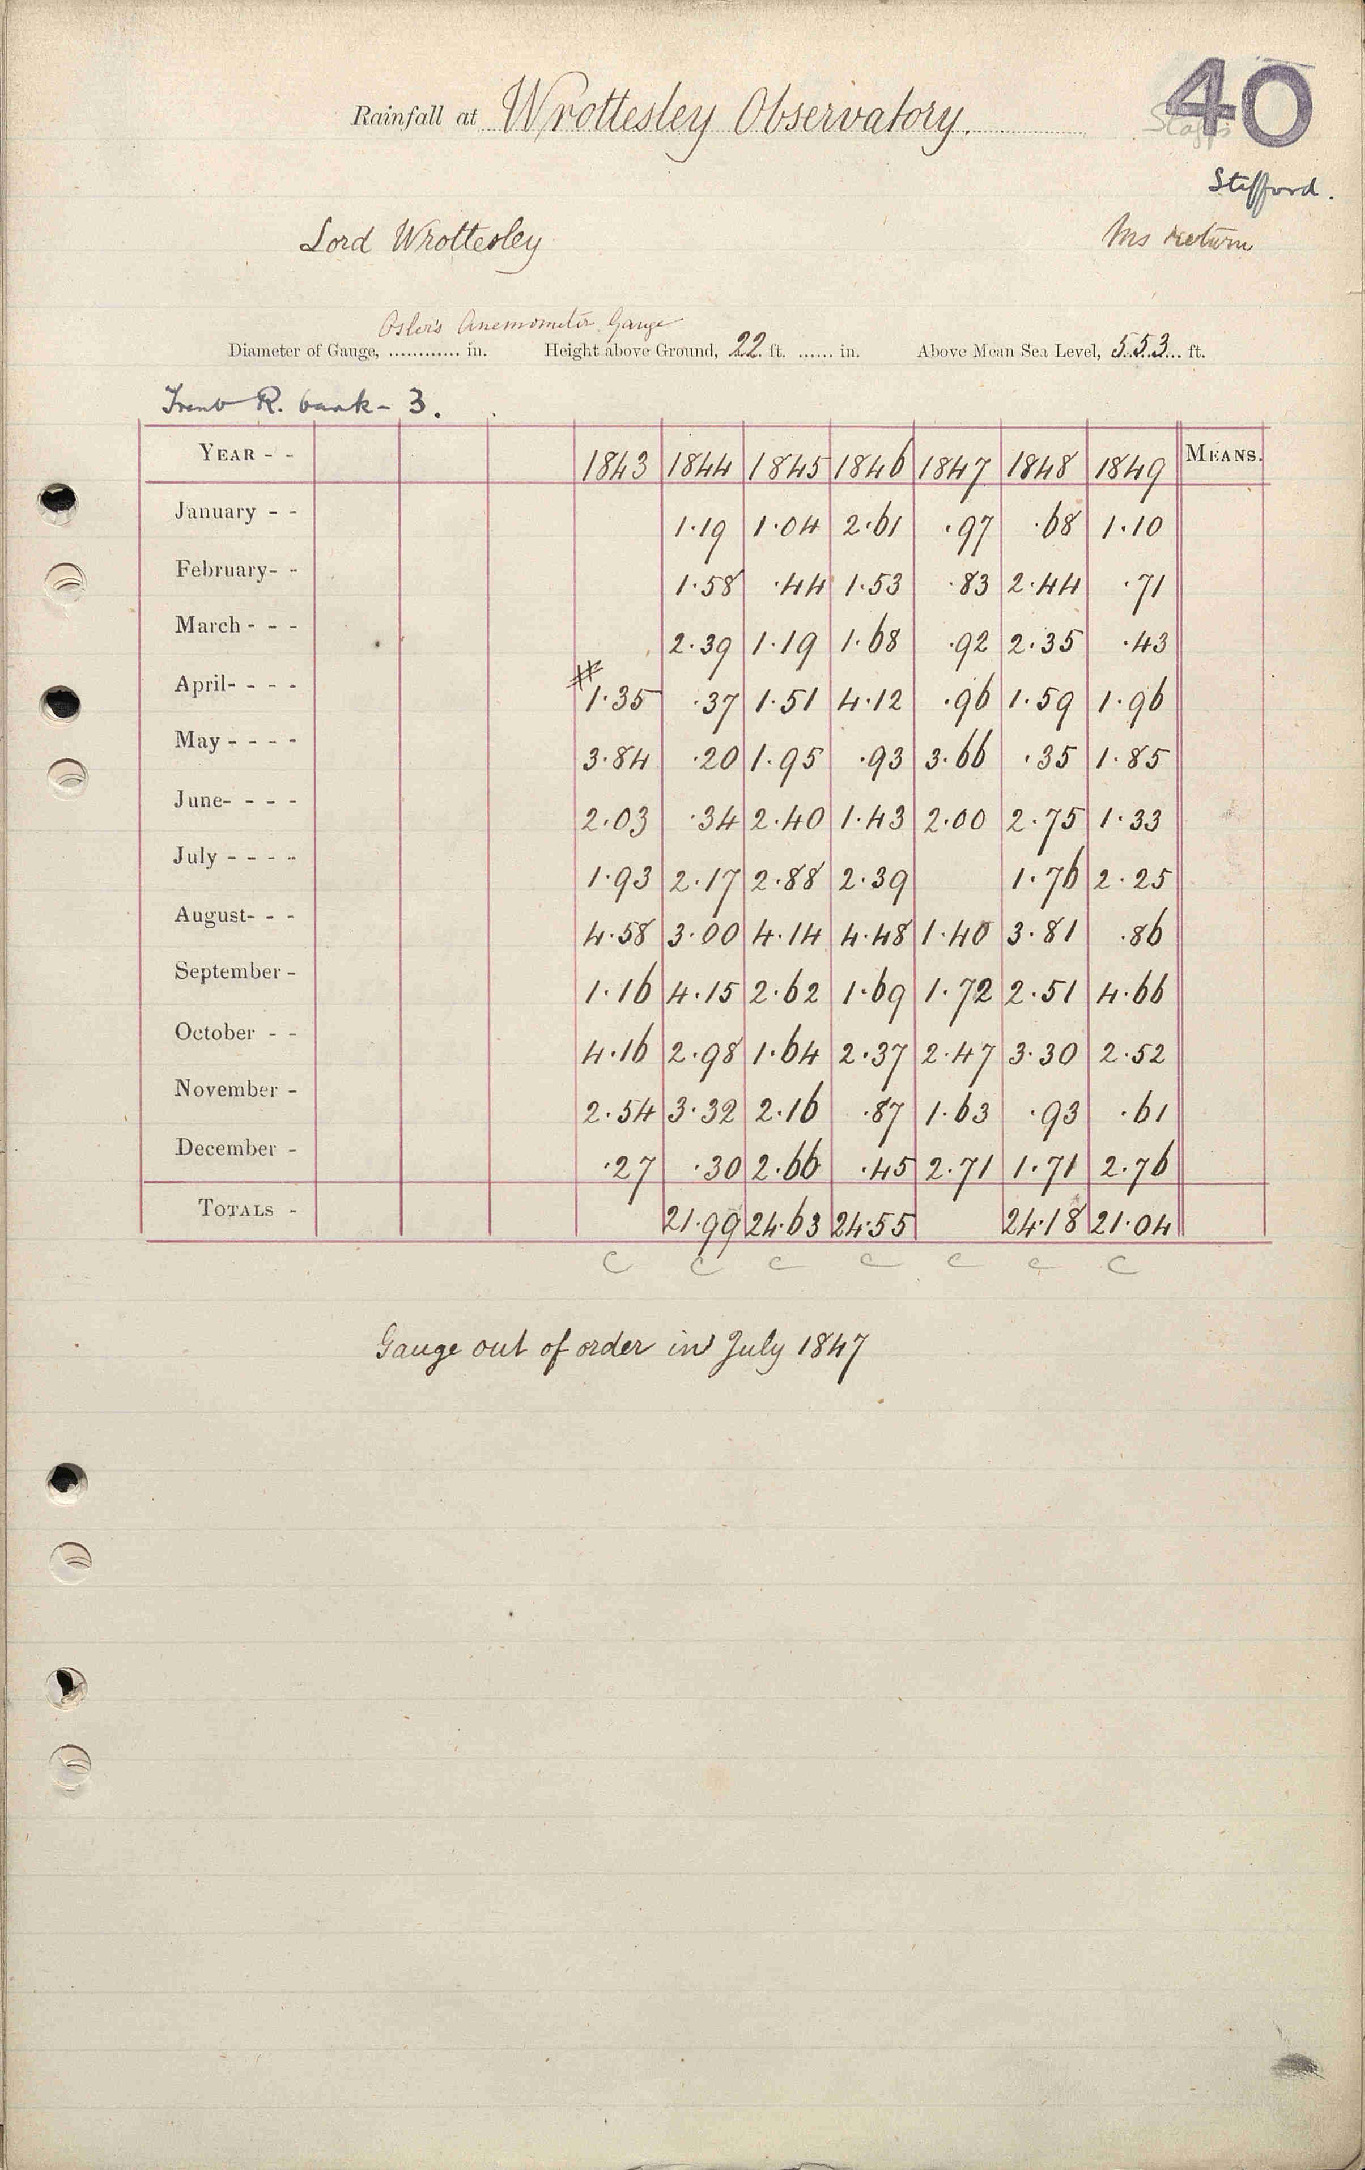 40
Rainfall at Wrottesley Observatory.
Staffs
Stafford.
Lord Wrottesley
Ms return
Osler's Anemometer Gauge
Diameter of Gauge, ............ in. Height above Ground, 22 ft. ...... in. Above Mean Sea Level, 553 ft.
Trent R. bank - 3.
YEAR - - 1843 1844 1845 1846 1847 1848 1849 MEANS.
January - - 1.19 1.04 2.61 .97 .68 1.10
February- - 1.58 .44 1.53 .83 2.44 .71
March - - - 2.39 1.19 1.68 .92 2.35 .43
April- - - - # 1.35 .37 1.51 4.12 .96 1.59 1.96
May - - - - 3.84 .20 1.95 .93 3.66 .35 1.85
June- - - - 2.03 .34 2.40 1.43 2.00 2.75 1.33
July - - - - 1.93 2.17 2.88 2.39 1.76 2.25
August- - - 4.58 3.00 4.14 4.48 1.40 3.81 .86
September - 1.16 4.15 2.62 1.69 1.72 2.51 4.66
October - - 4.16 2.98 1.64 2.37 2.47 3.30 2.52
November - 2.54 3.32 2.16 .87 1.63 .93 .61
December - .27 .30 2.66 .45 2.71 1.71 2.76
TOTALS - 21.99 24.63 24.55 24.18 21.04
C C C C C C C
Gauge out of order in July 1847